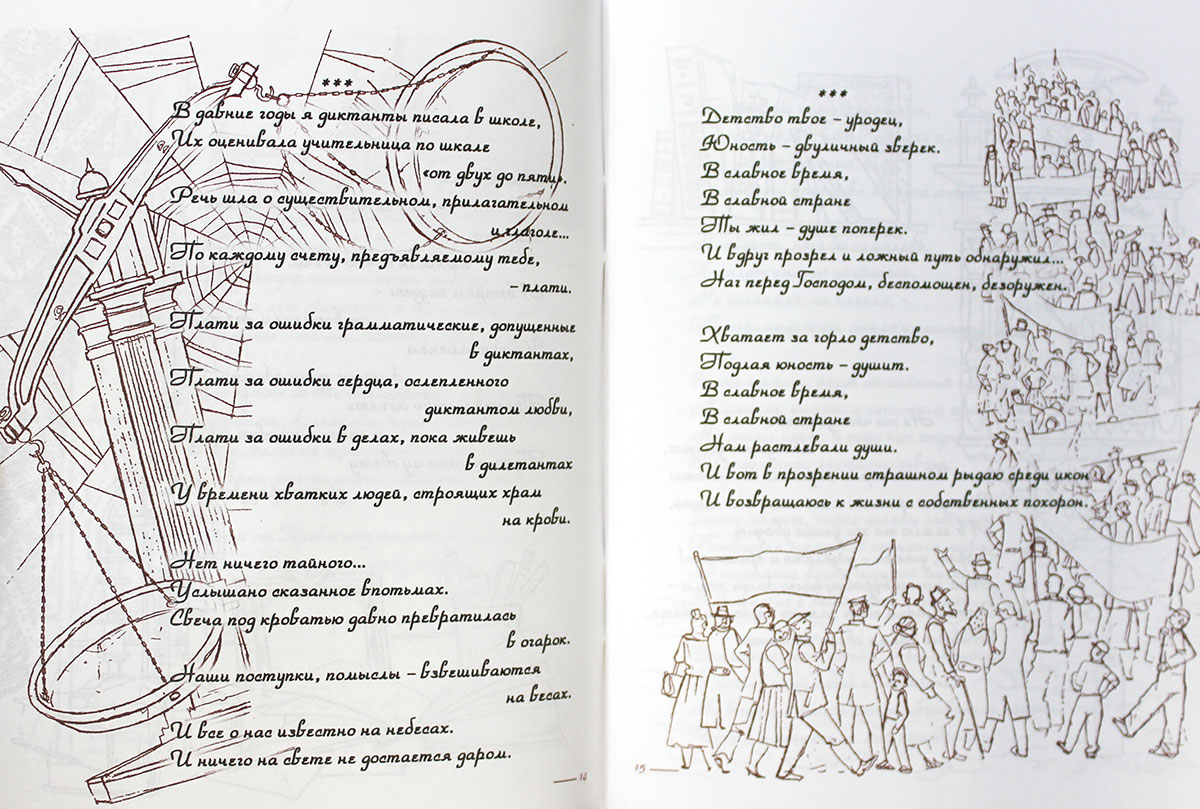 ***
В давние годы я диктанты писала в школе,
Их оценивала учительница по шкале
«от двух до пяти».
Речь шла о существительном, прилагательном
и глаголе...
По каждому счету, предъявляемому тебе,
– плати.
Плати за ошибки грамматические, допущенные
в диктантах,
Плати за ошибки сердца, ослепленного
диктантом любви,
Плати за ошибки в делах, пока живешь
в дилетантах
У времени хватких людей, строящих храм
на крови.
Нет ничего тайного...
Услышано сказанное впотьмах.
Свеча под кроватью давно превратилась
в огарок.
Наши поступки, помыслы – взвешиваются
на весах.
И все о нас известно на небесах.
И ничего на свете не достается даром.
14
***
Детство твое – уродец,
Юность – двуличный зверек.
В славное время,
В славной стране
Ты жил – душе поперек.
И вдруг прозрел и ложный путь обнаружил...
Наг перед Господом, беспомощен, безоружен.
Хватает за горло детство,
Подлая юность – душит.
В славное время,
В славной стране
Нам растлевали души.
И вот в прозрении страшном рыдаю среди икон
И возвращаюсь к жизни с собственных похорон.
15